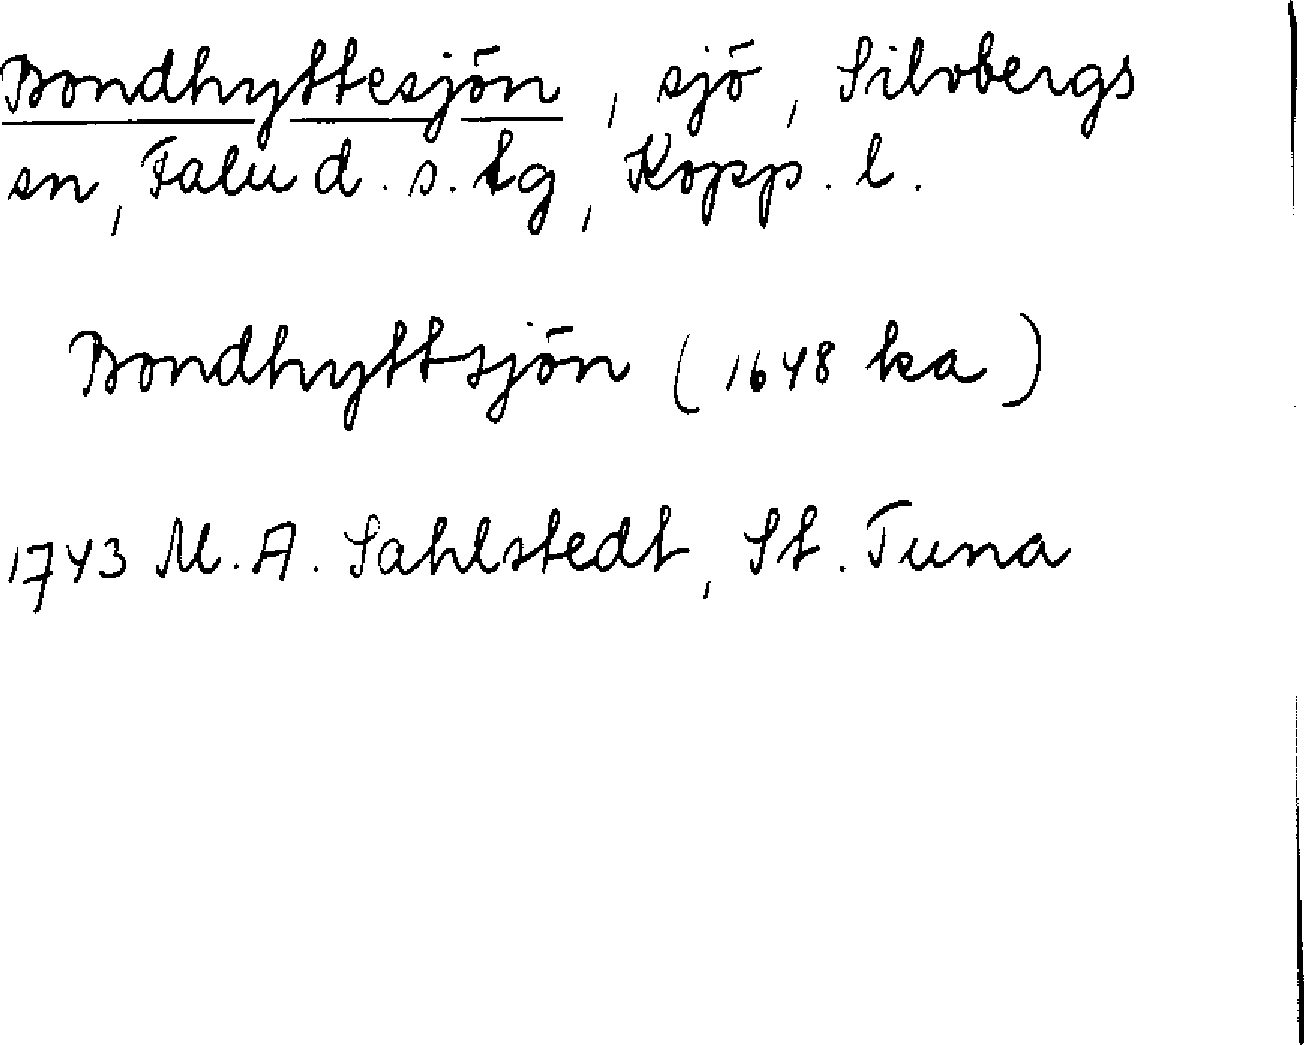 Bondhyttesjön, sjö, Silvbergs
sn, Falu d. s. tg, Kopp. l.
Bondhyttsjön (1648 ka)
1743 M. A. Sahlstedt, St. Tuna